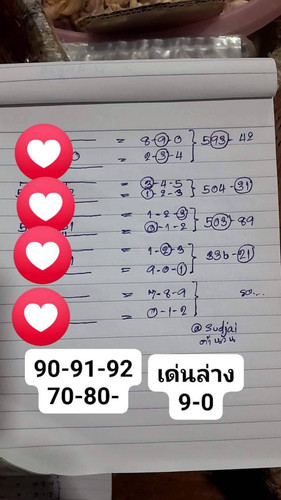 = 8-9-0
593-42
0 = 2-3-4
= 3-4-5
504-31
= 1-2-3
= 1-2-3
503-89
= 0-1-2
= 1-2-3
336-21
= 9-0-1
= 7-8-9
80....
= 0-1-2
@Sudjai
คำนวน
90-91-92
70-80-
เด่นล่าง
9-0